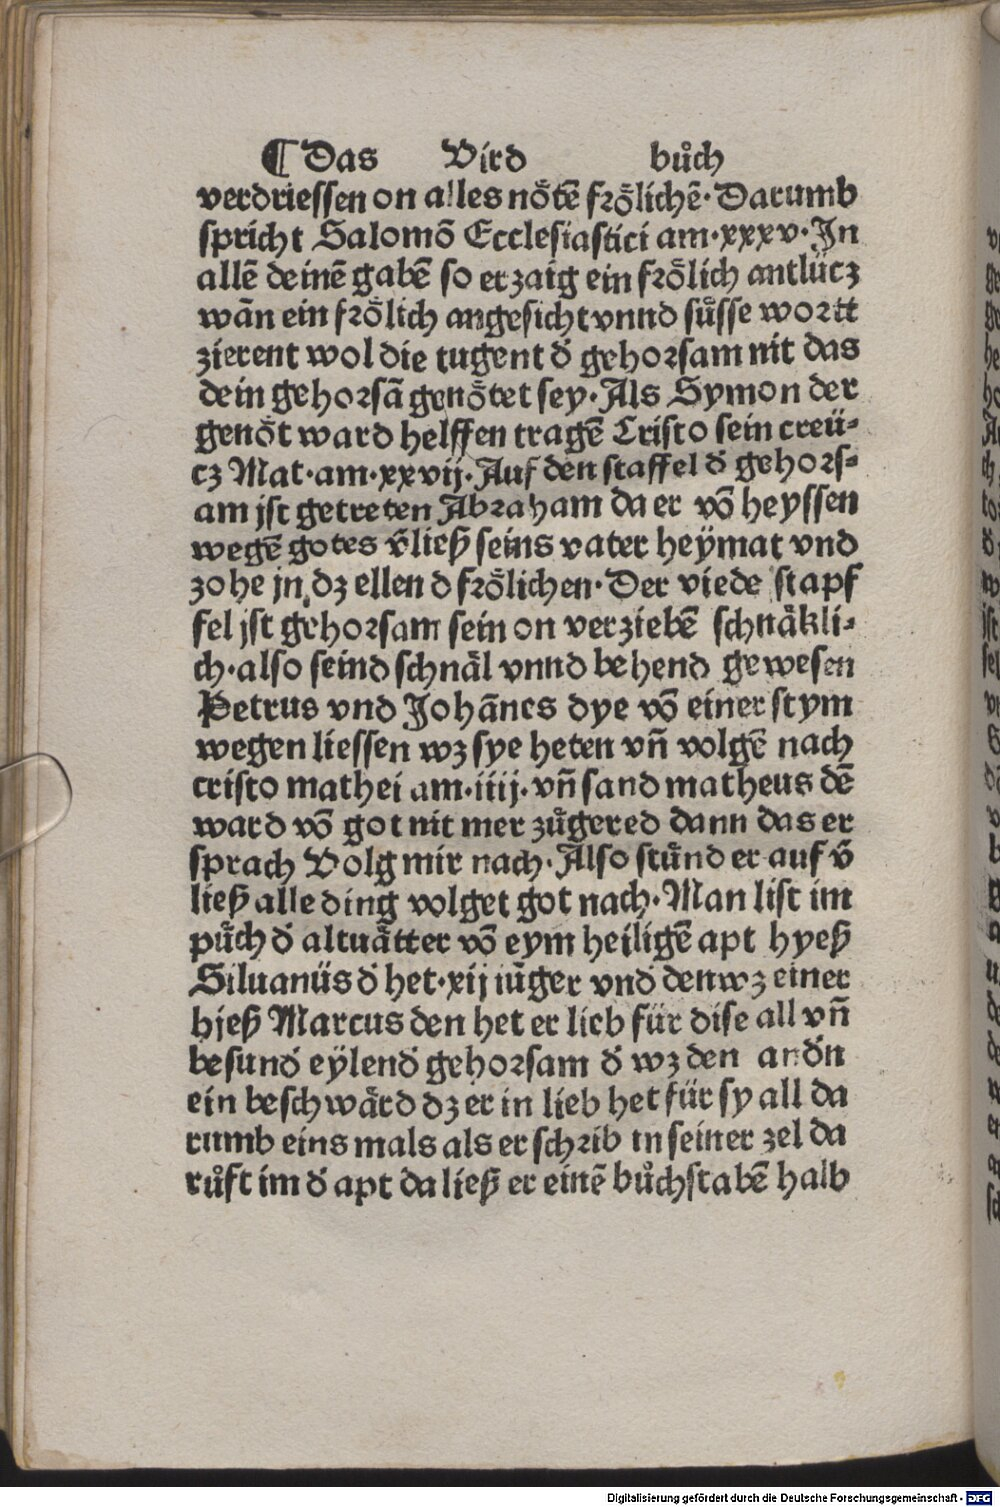 ¶ Das Vird bůch
verdriessen on alles nȫtē frȫlichē· Darumb
spricht Salomō Ecclesiastici am·xxxv·In
allē deinē gabē so erzaig ein frölich antlücz
wān ein frölich angesicht vnnd sůsse wortt
zierent wol die tugent d̄ gehorsam nit das
dein gehorsā genötet sey·Als Symon der
genöt ward helffen tragē Cristo sein creü⸗
cz Mat·am·xxvij·Auf den staffel d̄ gehors⸗
am jst getreten Abraham da er vō heyssen
wegē gotes v̄ließ seins vater heÿmat vnd
zohe jn dz ellend frölichen·Der vierde stapf
fel jst gehorsam sein on verziehē schnäkli⸗
ch·also seind schnäl vnnd behend gewesen
Petrus vnd Johānes dye vō einer stym
wegen liessen wz sye heten vn̄ volgē nach
cristo mathei am·iiij·vn̄ sand matheus dē
ward vō got nit mer zůgered dann das er
sprach Volg mir nach·Also stůnd er auf v̄
ließ alle ding volget got nach·Man list im
půch d̄ altuätter vō eym heiligē apt hyeß
Siluanüs d̄ het·xij iūger vnd den wz einer
hjeß Marcus den het er lieb für dise all vn̄
besund̄ eÿlend̄ gehorsam d̄ wz den and̄n
ein beschwärd dz er in lieb het für sy all da
rumb eins mals als er schrib in seiner zel da
růft im d̄ apt da ließ er einē bůchstabē halb
Digitalisierung gefördert durch die Deutsche Forschungsgemeinschaft - DFG